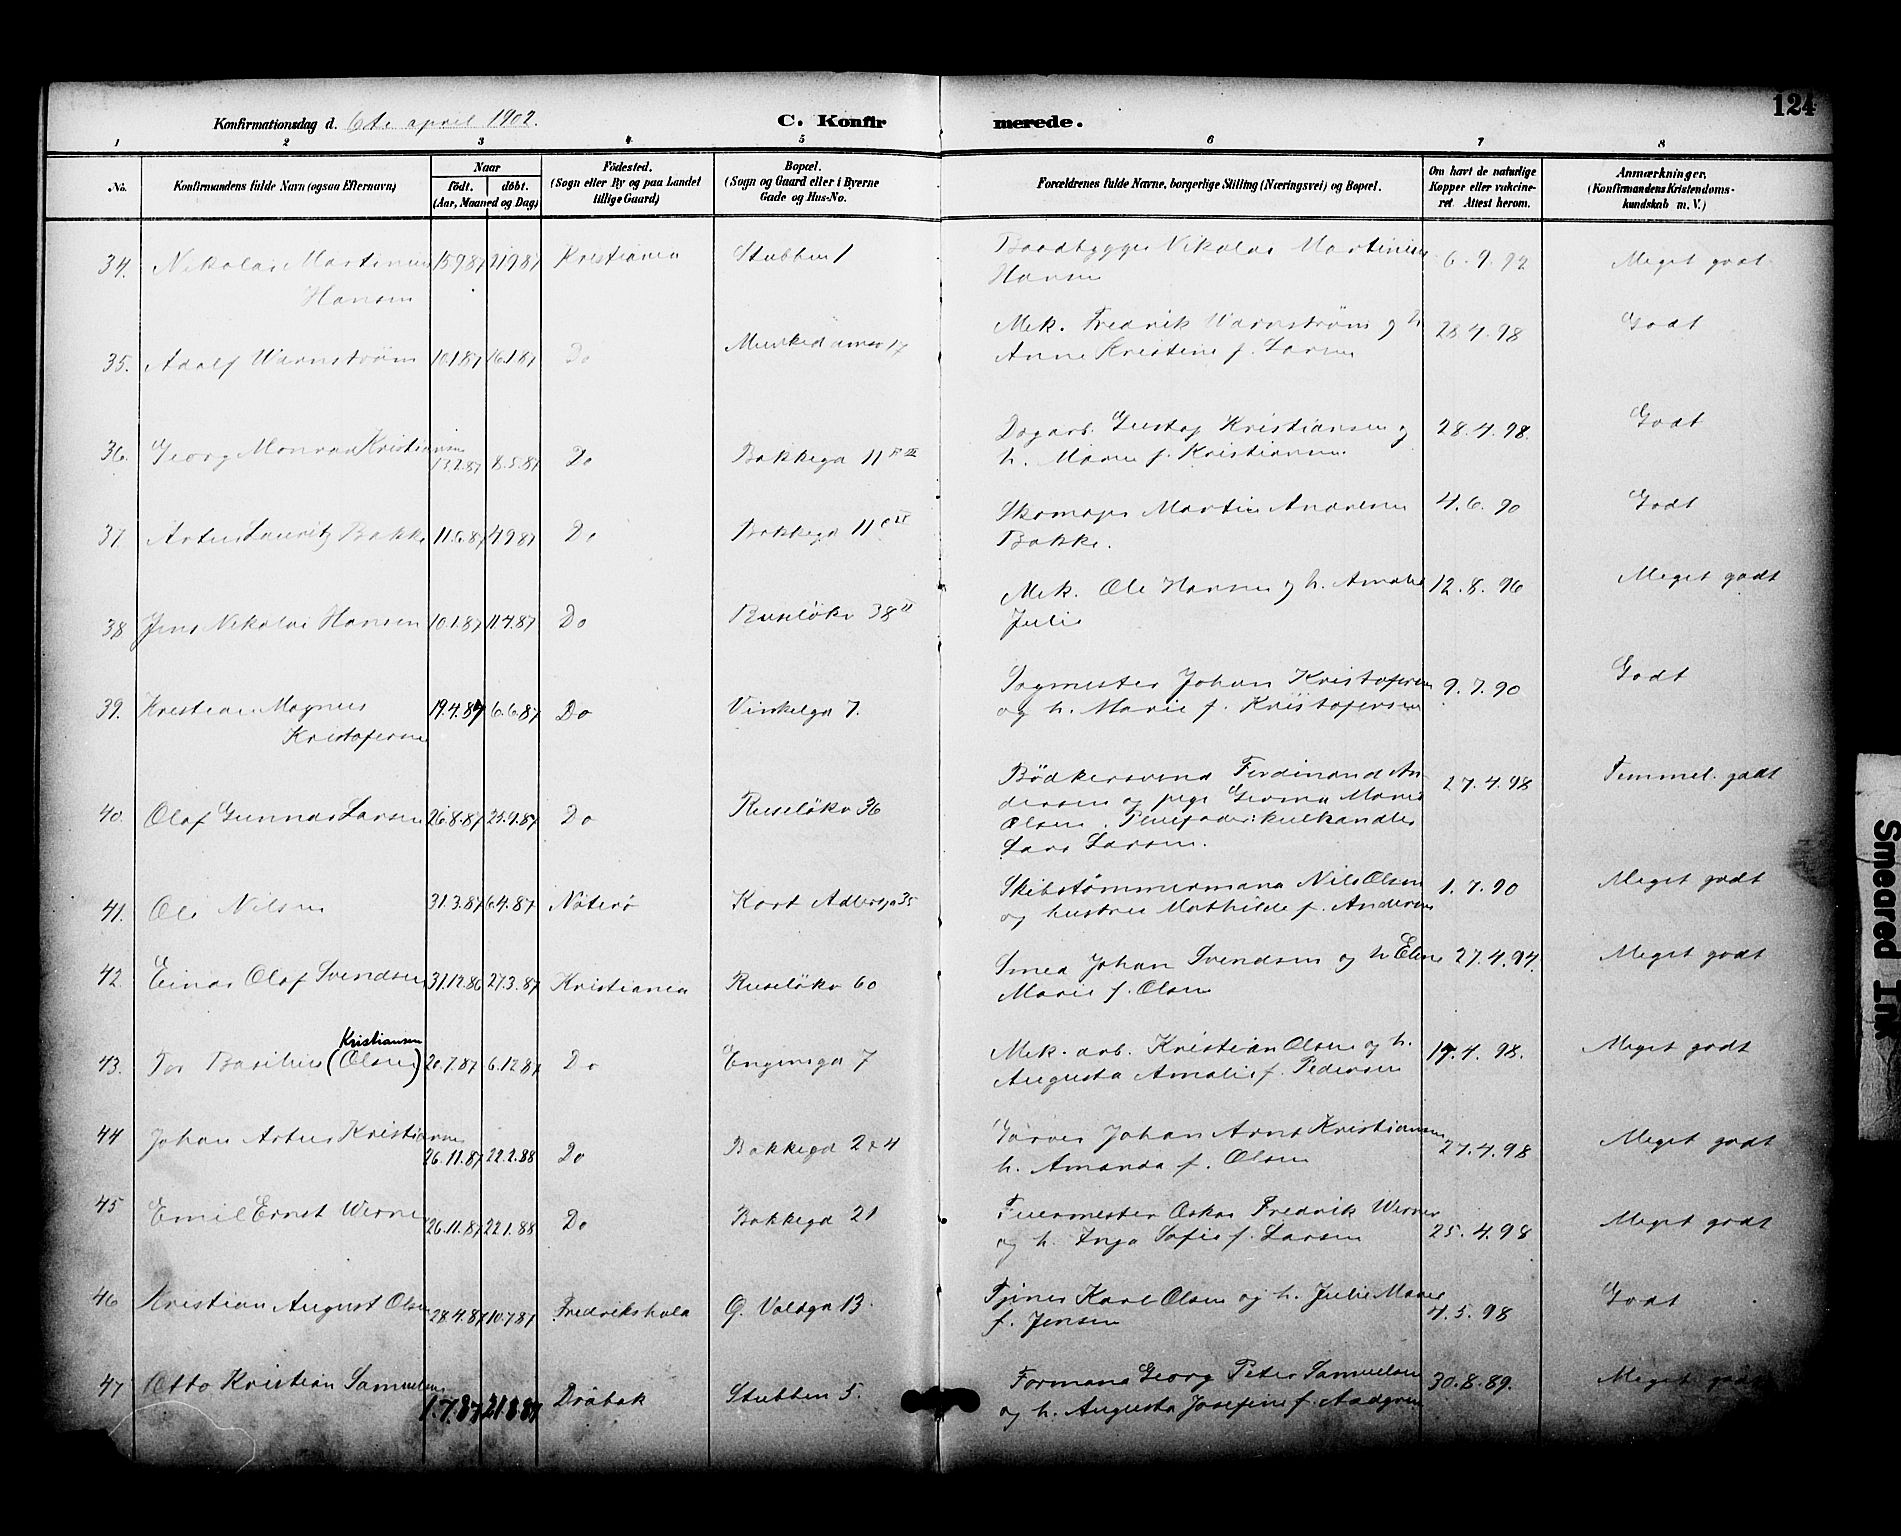 124
Konfirmationsdag d. 6te april 1902.
C. Konfirmerede.
1 2 3 4 5 6 7 8
No. Konfirmandens fulde Navn (ogsaa Efternavn) Naar født. døbt. (Aar, Maaned og Dag) Fødested. (Sogn eller By og paa Landet tillige Gaard) Bopæl. (Sogn og Gaard eller i Byerne Gade og Hus-No. Forældrenes fulde Navne, borgerlige Stilling (Næringsvei) og Bopæl. Om havt de naturlige Kopper eller vakcineret Attest herom. Anmærkninger. (Konfirmandens Kristendomskundskab m. V.)
34. Nikolai Martinius 15987 21987 Kristiania Stubben 1 Baadbygger Nikolai Martinius 6.9.92 Meget godt
Hansen Hansen
35. Adolf Warnstrøm 10187 16187 Do Munkedamsv 17 Mek. Fredrik Warnstrøm og h. 28 4.98 Godt
Anne Kristine f. Larsen
36. Georg Monrad Kristiansen 13.2.87 8.5.87 Do Bakkegd 11 Dagarb. Gustaf Kristiansen og 28.4.98. Godt
h. Marie f. Kristiansen
37. Artur Lauritz Bakke 11.6.87 4987 Do Bakkegd 11 Skomager Martin Andreas 4.6.90 Godt
Bakke.
38. Jens Nikolai Hansen 10.1.87 11.4.87 Do Ruseløkv 38 II Mek. Ole Hansen og h. Amalie 12.8.96 Meget godt
Julie
39. Kristian Magnus 19.4.87 6.6.87 Do Vinkelgd 7. Sagmester Johan Kristofersen 9.7.90 Godt
Kristofersen og h. Marie f. Kristofersen
40. Olaf Gunnar Larsen 26.8.87 25.9.87 Do Ruseløkv 36 Bødkersvend Ferdinand An- 27.4.98 Temmel. godt
dersen og pige Marie
Olsen.
Lars Larsen.
41. Ole Nilsen 31.3.87 6.4.87 Nøterø Kort Adlersgd 35 Skibstømmermand Nils Olsen 1.7.90 Meget godt
og hustru Mathilde f. Andersen
42. Einar Olaf Svendsen 31.12.86 27.3.87 Kristiania Ruseløkv 60 Smed Johan Svendsen og h Eline 27.4.94. Meget godt
Marie f. Olsen
43. Tor Basilius (Olsen) Kristiansen 20.7.87 6.12.87 Do Engensgd 7 Mek. arb. Kristian Olsen og h. 19.4.98. Meget godt
Augusta Amalie f. Pedersen
44 Johan Artur Kristiansen 26.11.87 22.2.88 Do Bakkegd 2 4 Garver Johan Arnt Kristiansen 27.4.98 Meget godt
h. Amanda f. Olsen
45 Emil Ernst Werner 26.11.87 22.1.88 Do Bakkegd 21 Fuermester Oskar Fredrik Werner 25.4.98 Meget godt
og h. Inga Sofie f. Larsen
46 Kristian August Olsen 28.4.87 10.787 Fredrikshald G. Valdgd 13. Tjener Karl Olsen og h. Julie Marie 4.5.98 Godt
f. Jensen
47 Otto Kristian Samuelsen 1.7.87 21887 Drøbak Stubben 5. Formand Georg Peter Samuelsen 30.8.89. Meget godt
og h. Augusta Josefine f. Aadgren
Smeared Ink